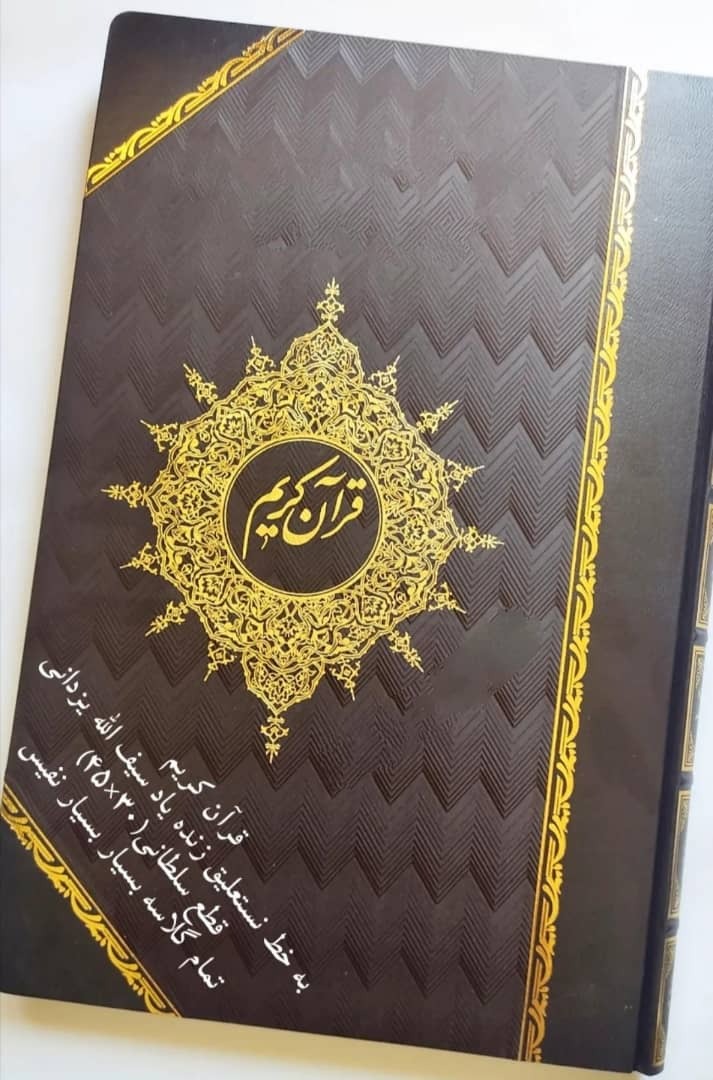 قرآن کریم
قرآن کریم
به خط نستعلیق زنده یاد سیف الله یزدانی
قطع سلطانی(۳۰×۴۵)
تمام گلاسه بسیار بسیار نفیس